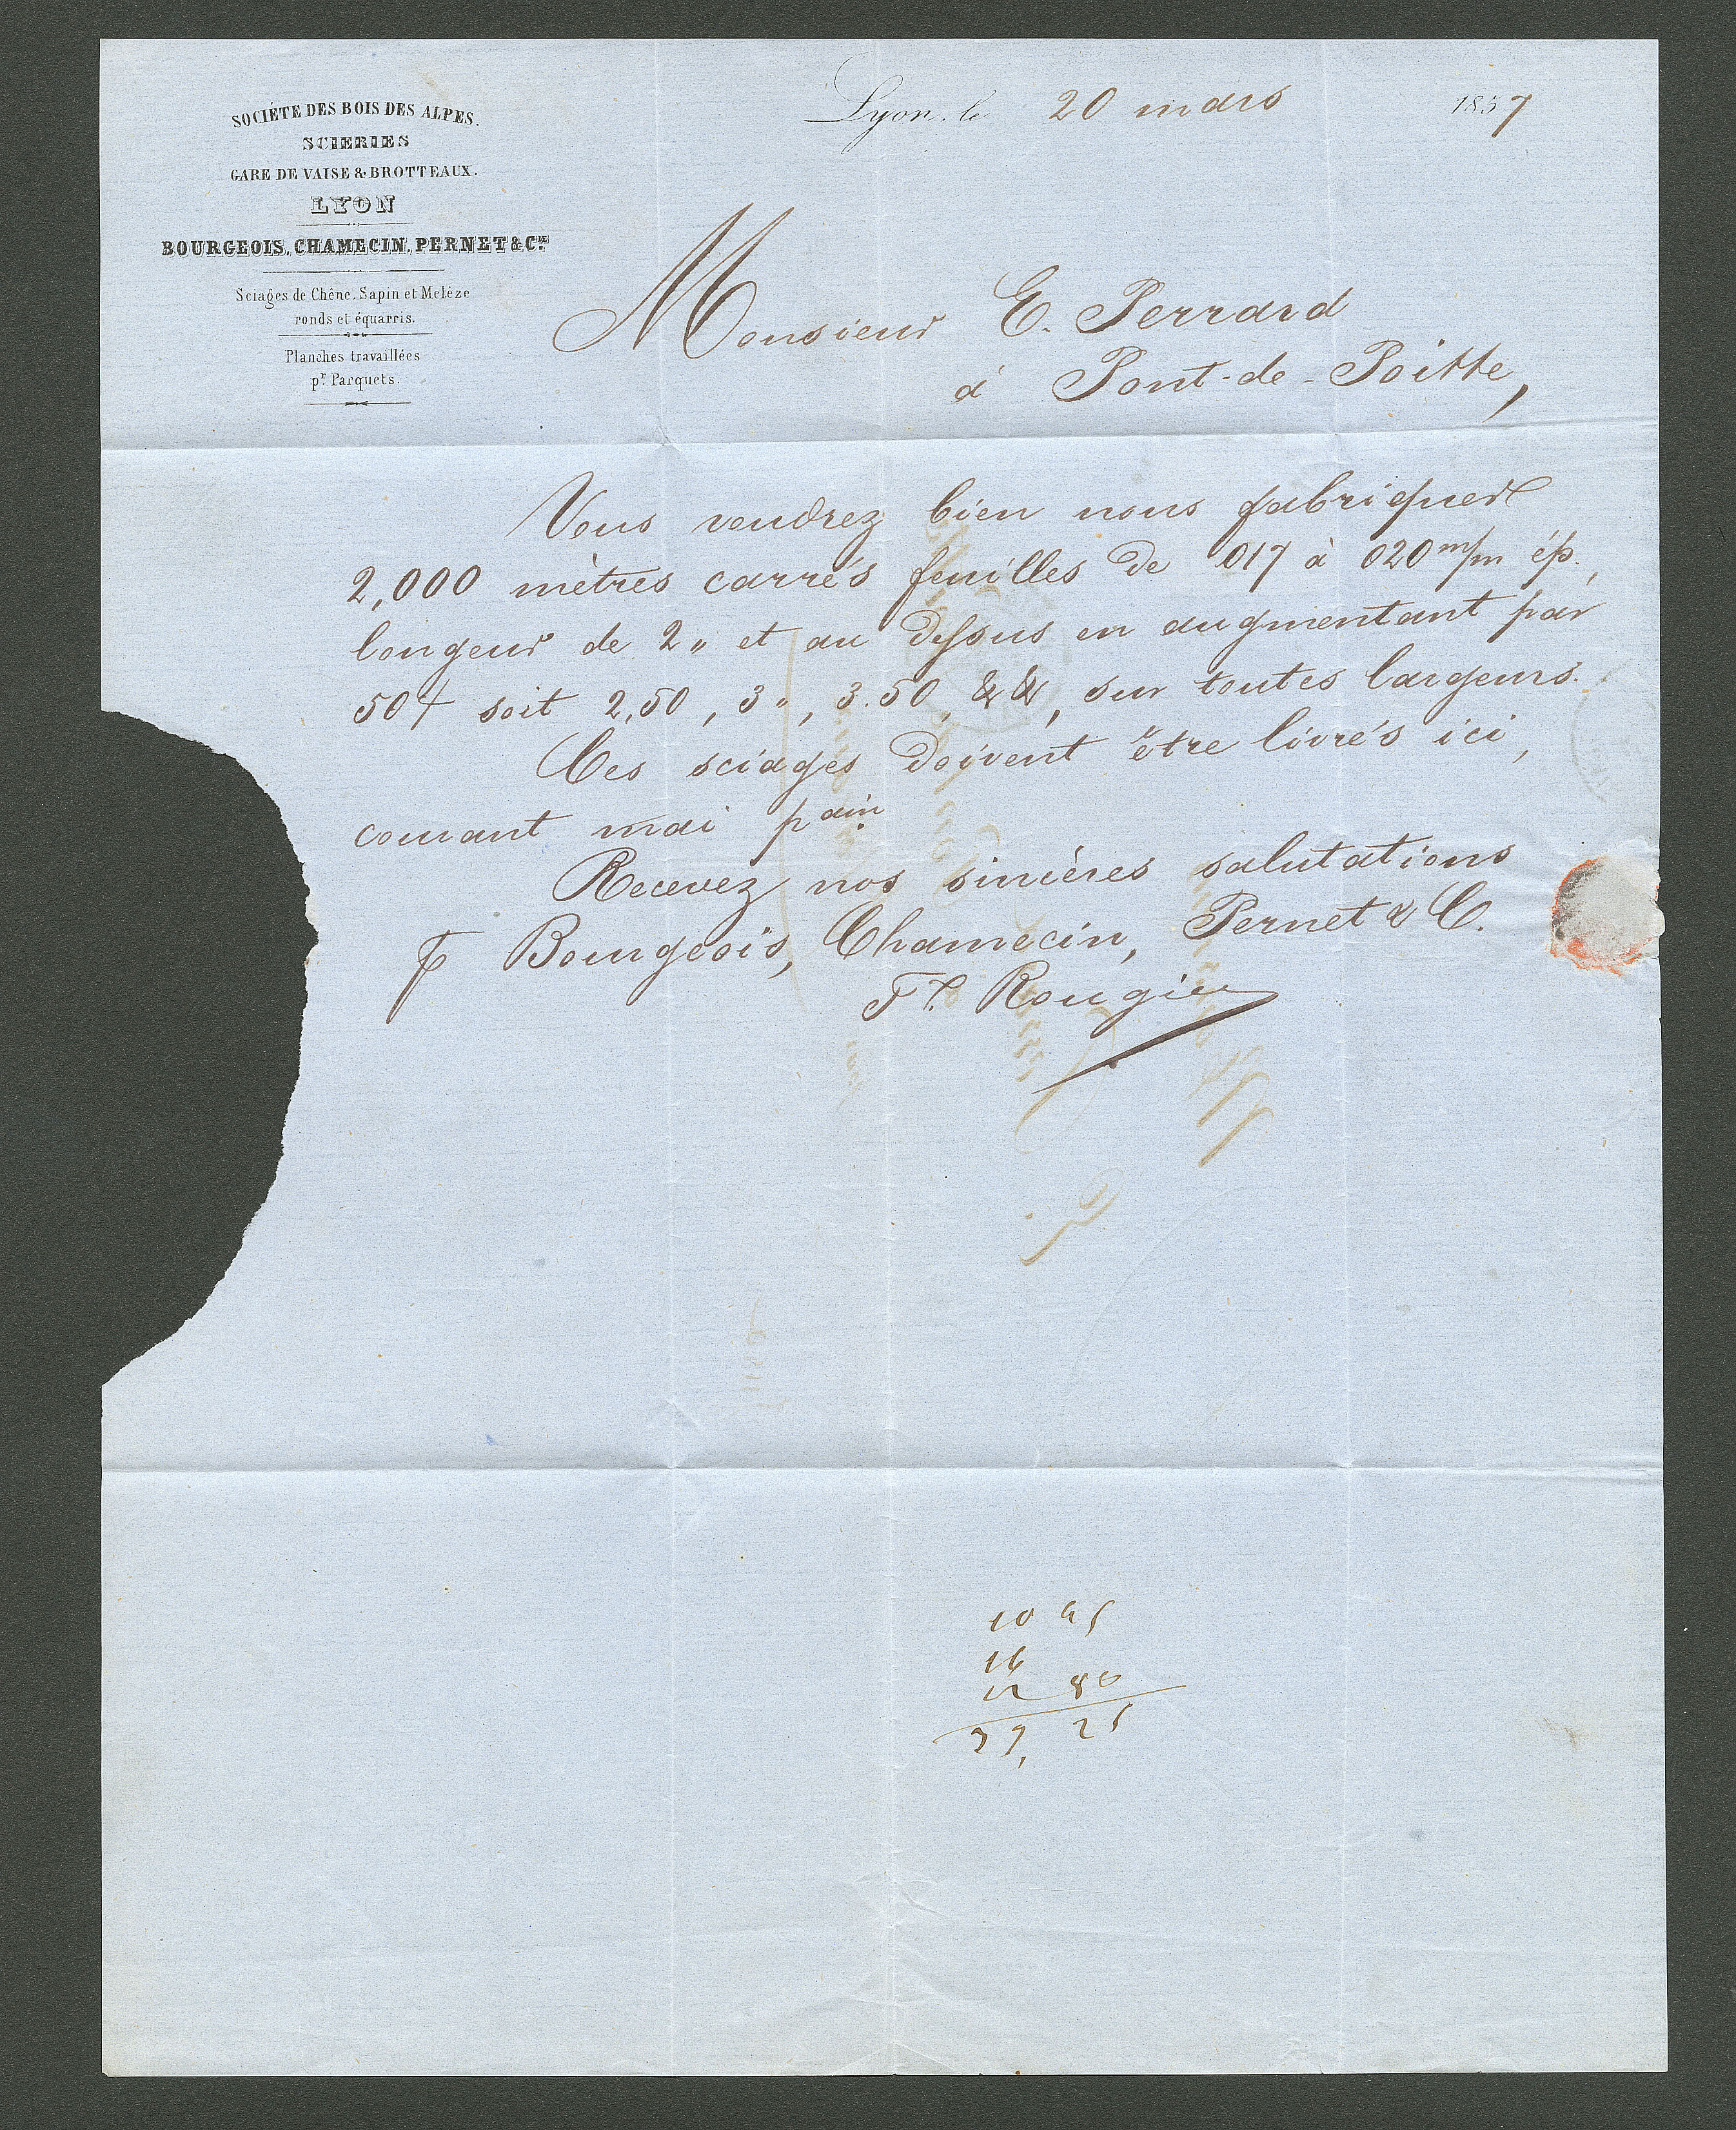 SOCIÉTÉ DES BOIS DES ALPES.
SCIERIES
GARE DE VAISE & BROTTEAUX.
LYON
BOURGEOIS, CHAMECIN, PERNET & Cie
Sciages de Chêne, Sapin et Melèze
ronds et équarris.
Planches travaillées
pr Parquets.
Lyon, le 20 mars 1857
Monsieur E. Perrard
à Pont-de-Poitte,
Vous voudrez bien nous fabriquer
2,000 mètres carrés feuilles de 017 à 020 m/m ép.,
longeur de 2 „ et au dessus en augmentant par
50 c/ soit 2,50, 3 „, 3.50, && , sur toutes largeurs.
Ces sciages doivent être livrés ici,
courant mai pain
Recevez nos sincères salutations
p Bourgeois, Chamecin, Pernet & C.
Rougier
10 45
16
12 80
39, 25